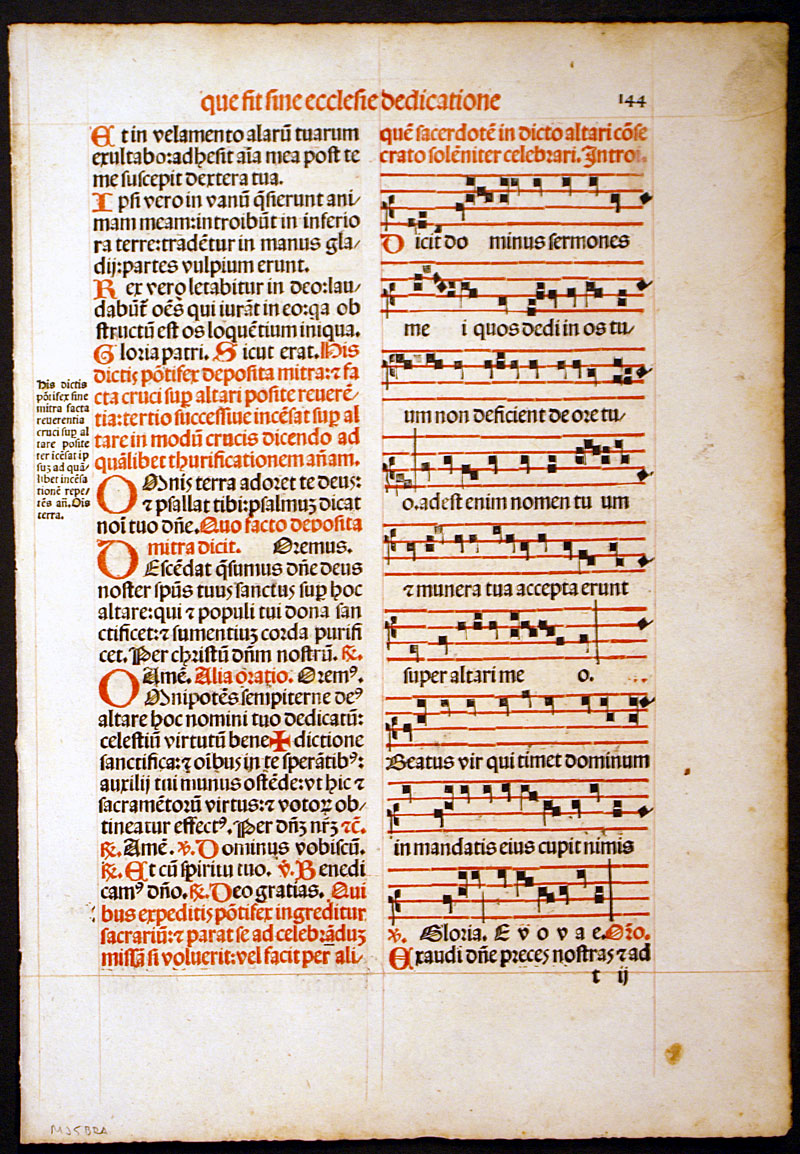 que fit sine ecclesie dedicatione
144
Et in velamento alarū tuarum
exultabo:adhesit aīa mea post te
me suscepit dextera tua.
Ipsi vero in vanū q̄sierunt ani/
mam meam:introibūt in inferio
ra terre:tradētur in manus gla/
dij:partes vulpium erunt.
Rex vero letabitur in deo:lau/
dabūt̄ oēs qui iurāt in eo:qa ob
structū est os loquētium iniqua.
Gloria patri. Sicut erat. His
dictis pōtifex deposita mitra:⁊ fa
cta cruci sup̱ altari posite reuerē/
tia:tertio successiue incēsat sup̱ al
tare in modū crucis dicendo ad
quālibet thurificationem añam.
OMnis terra adoret te deus:
⁊ psallat tibi:psalmuꝫ dicat
noī tuo dñe. Quo facto deposita
mitra dicit. Oremus.
DEscēdat q̄sumus dñe deus
noster spūs tuus sanctus sup̱ hoc
altare:qui ⁊ populi tui dona san
ctificet:⁊ sumentiuꝫ corda purifi
cet. Per christū dñm nostrū. ℟.
Amē. Alia oratio. Oremꝰ.
OMnipotēs sempiterne deꝰ
altare hoc nomini tuo dedicatū:
celestiū virtutū bene✠dictione
sanctifica:⁊ oībus in te sperātibꝰ:
auxilij tui munus ostēde:vt hic ⁊
sacramētorū virtus:⁊ votoꝝ ob/
tineatur effectꝰ. Per dñꝫ nr̄ꝫ ⁊c̄.
℟. Amē. ℣. Dominus vobiscū.
℟. Et cū spiritu tuo. ℣. Benedi
camꝰ dño. ℟. Deo gratias. Qui
bus expeditis pōtifex ingreditur
sacrariū:⁊ parat se ad celebrāduꝫ
missā si voluerit:vel facit per ali-
His dictis
pōtifex sine
mitra facta
reuerentia
cruci sup̱ al
tare posite
ter icēsat ip
suꝫ ad quā/
libet incēsa
tionē repe/
tēs añ. Oīs
terra.
quē sacerdotē in dicto altari cōse
crato solēniter celebrari. Introi.
Dicit do minus sermones
me i quos dedi in os tu/
um non deficient de ore tu/
o. adest enim nomen tu um
⁊ munera tua accepta erunt
super altari me o.
Beatus vir qui timet dominum
in mandatis eius cupit nimis
℣. Gloria. E v o v a e. Orō.
Exaudi dñe preces nostras ⁊ ad
t ij
MJ5BRA